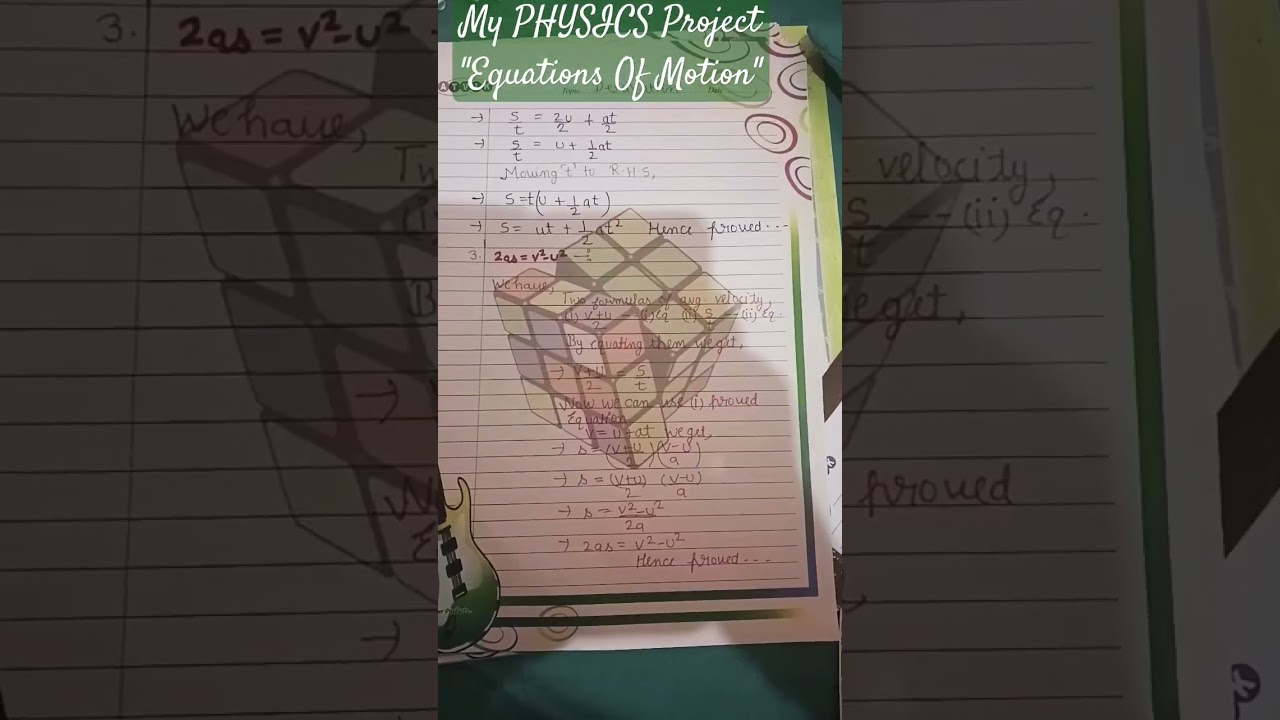 My PHYSICS Project
"Equations Of Motion"
Topic
Date
→ s/t = 2u/2 + at/2
→ s/t = u + 1/2 at
Moving 't' to R.H.S,
→ s=t(u + 1/2 at)
→ s= ut + 1/2 at² Hence proved...
3. 2as = v²-u² —:
We have,
Two formulas of avg. velocity,
(i) v+u/2 --(i)Eq (ii) s/t --(ii) Eq.
By equating them we get,
→ v+u/2 = s/t
Now we can use (i) proved
Equation
v=u+at we get,
→ s = (v+u/2)(v-u/a)
→ s = (v+u)/2 (v-u)/a
→ s = v²-u²/2a
→ 2as = v²-u²
Hence proved...
3. 2as = v²-u²
We have,
velocity,
s/t --(ii) Eq.
we get,
proved